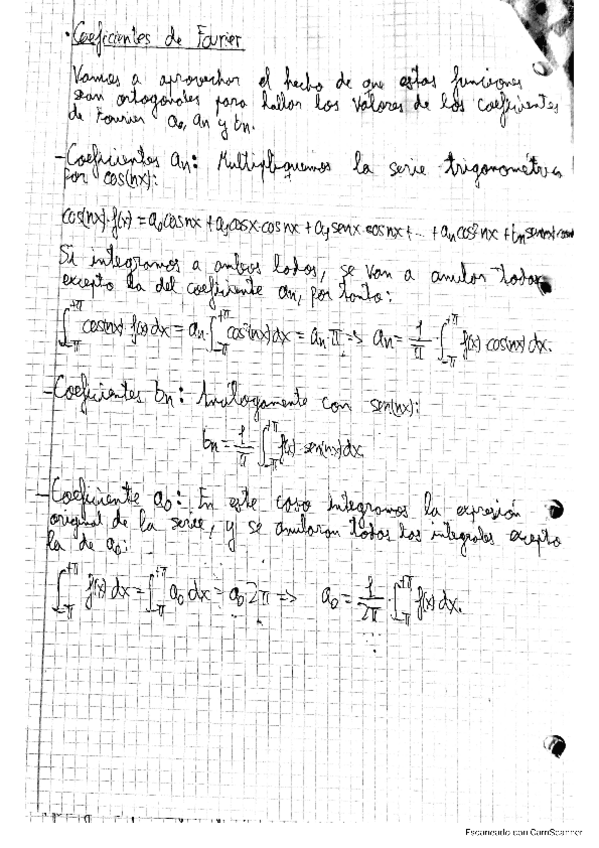 · Coeficientes de Fourier
Vamos a aprovechar el hecho de que estas funciones
sean ortogonales para hallar los valores de los coeficientes
de Fourier a₀, an y bn.
- Coeficientes an: Multipliquemos la serie trigonométrica
por cos(nx):
cos(nx)·f(x) = a₀cosnx + a₁cosx·cosnx + a₁senx·cosnx + ... + an cos²nx + bn sen(nx)cosnx
Si integramos a ambos lados, se van a anular todas
excepto la del coeficiente an, por tanto:
∫_{-π}^{+π} cos(nx)·f(x)dx = an·∫_{-π}^{+π} cos²(nx)dx = an·π => an = 1/π · ∫_{-π}^{+π} f(x)·cos(nx)dx.
- Coeficientes bn: Análogamente con sen(nx):
bn = 1/π ∫_{-π}^{+π} f(x)·sen(nx)dx
- Coeficiente a₀: En este caso integramos la expresión
original de la serie, y se anularan todas las integrales excepto
la de a₀:
∫_{-π}^{+π} f(x)dx = ∫_{-π}^{+π} a₀dx = a₀2π => a₀ = 1/2π · ∫_{-π}^{+π} f(x)dx.
Escaneado con CamScanner